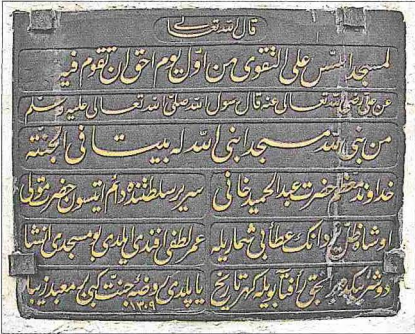 قال الله تعالى
لمسجد اسس على التقوى من اول يوم احق ان تقوم فيه
عن على رضى الله تعالى عنه قال رسول الله صلى الله تعالى عليه وسلم
من بنى لله مسجدا بنى الله له بيتا فى الجنة
خداوند معظم حضرت عبد الحميد خانى سرير سلطنتده دائم ايتسون حضرت مولى
او شاهك عطابى شماريله عمر لطفى افندى ايلدى بو مسجدى انشا
تاريخ يا پلدى روضه جنت كبى بو معبد زيبا
١٣٠٩